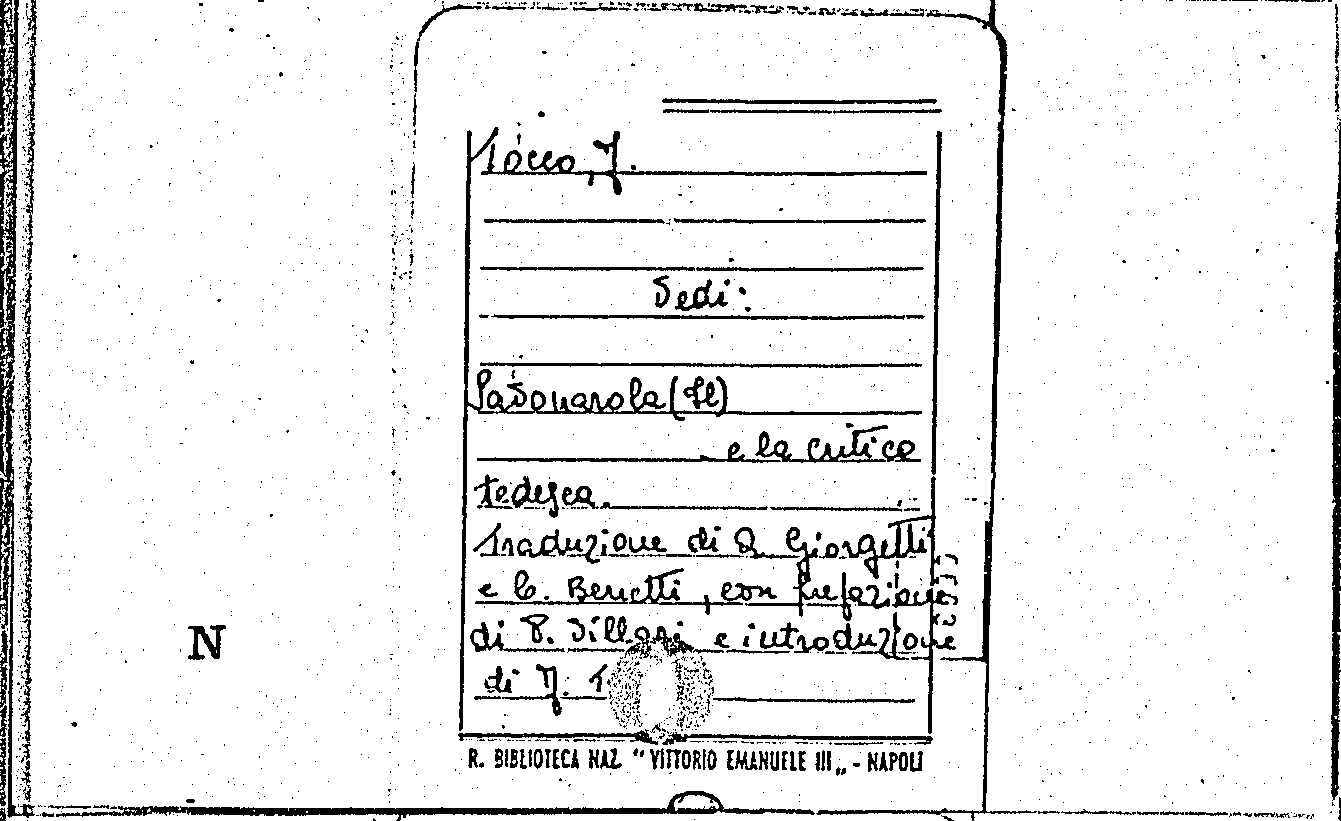 Tocco, F.
Vedi:
Savonarola (Il)
e la critica
tedesca.
Traduzione di A. Giorgetti
e C. Benetti, con prefazione
di P. Villari e introduzione
di F. T
N
R. BIBLIOTECA NAZ. "VITTORIO EMANUELE III„ - NAPOLI